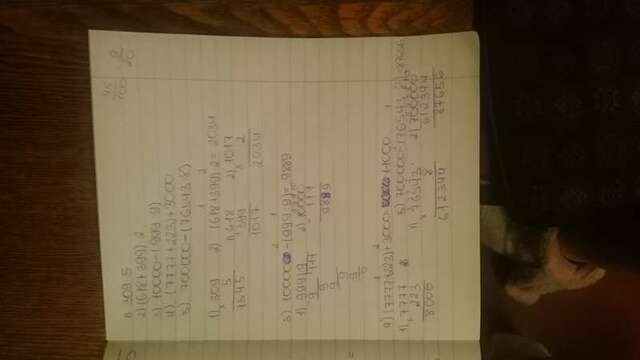 1) 309·5
2) (618+399)·2
3) 10000-(999:9)
4) (7777+223)+3000
5) 700000-(76543·8)
1) 309 2) (618+399)·2=2034
× 5 1) 618 2) 1017
1545 399 × 2
1017 2034
3) 10000-(999:9)=9889
1) 999|9 2) 10000
9 111 - 111
9 9889
9
9
9
0
4) (7777+223)+3000 11000 5) 700000-(76543·8)=87656
1) 7777 1) 76543 2) 700000
223 × 8 612344
8000 612344 87656